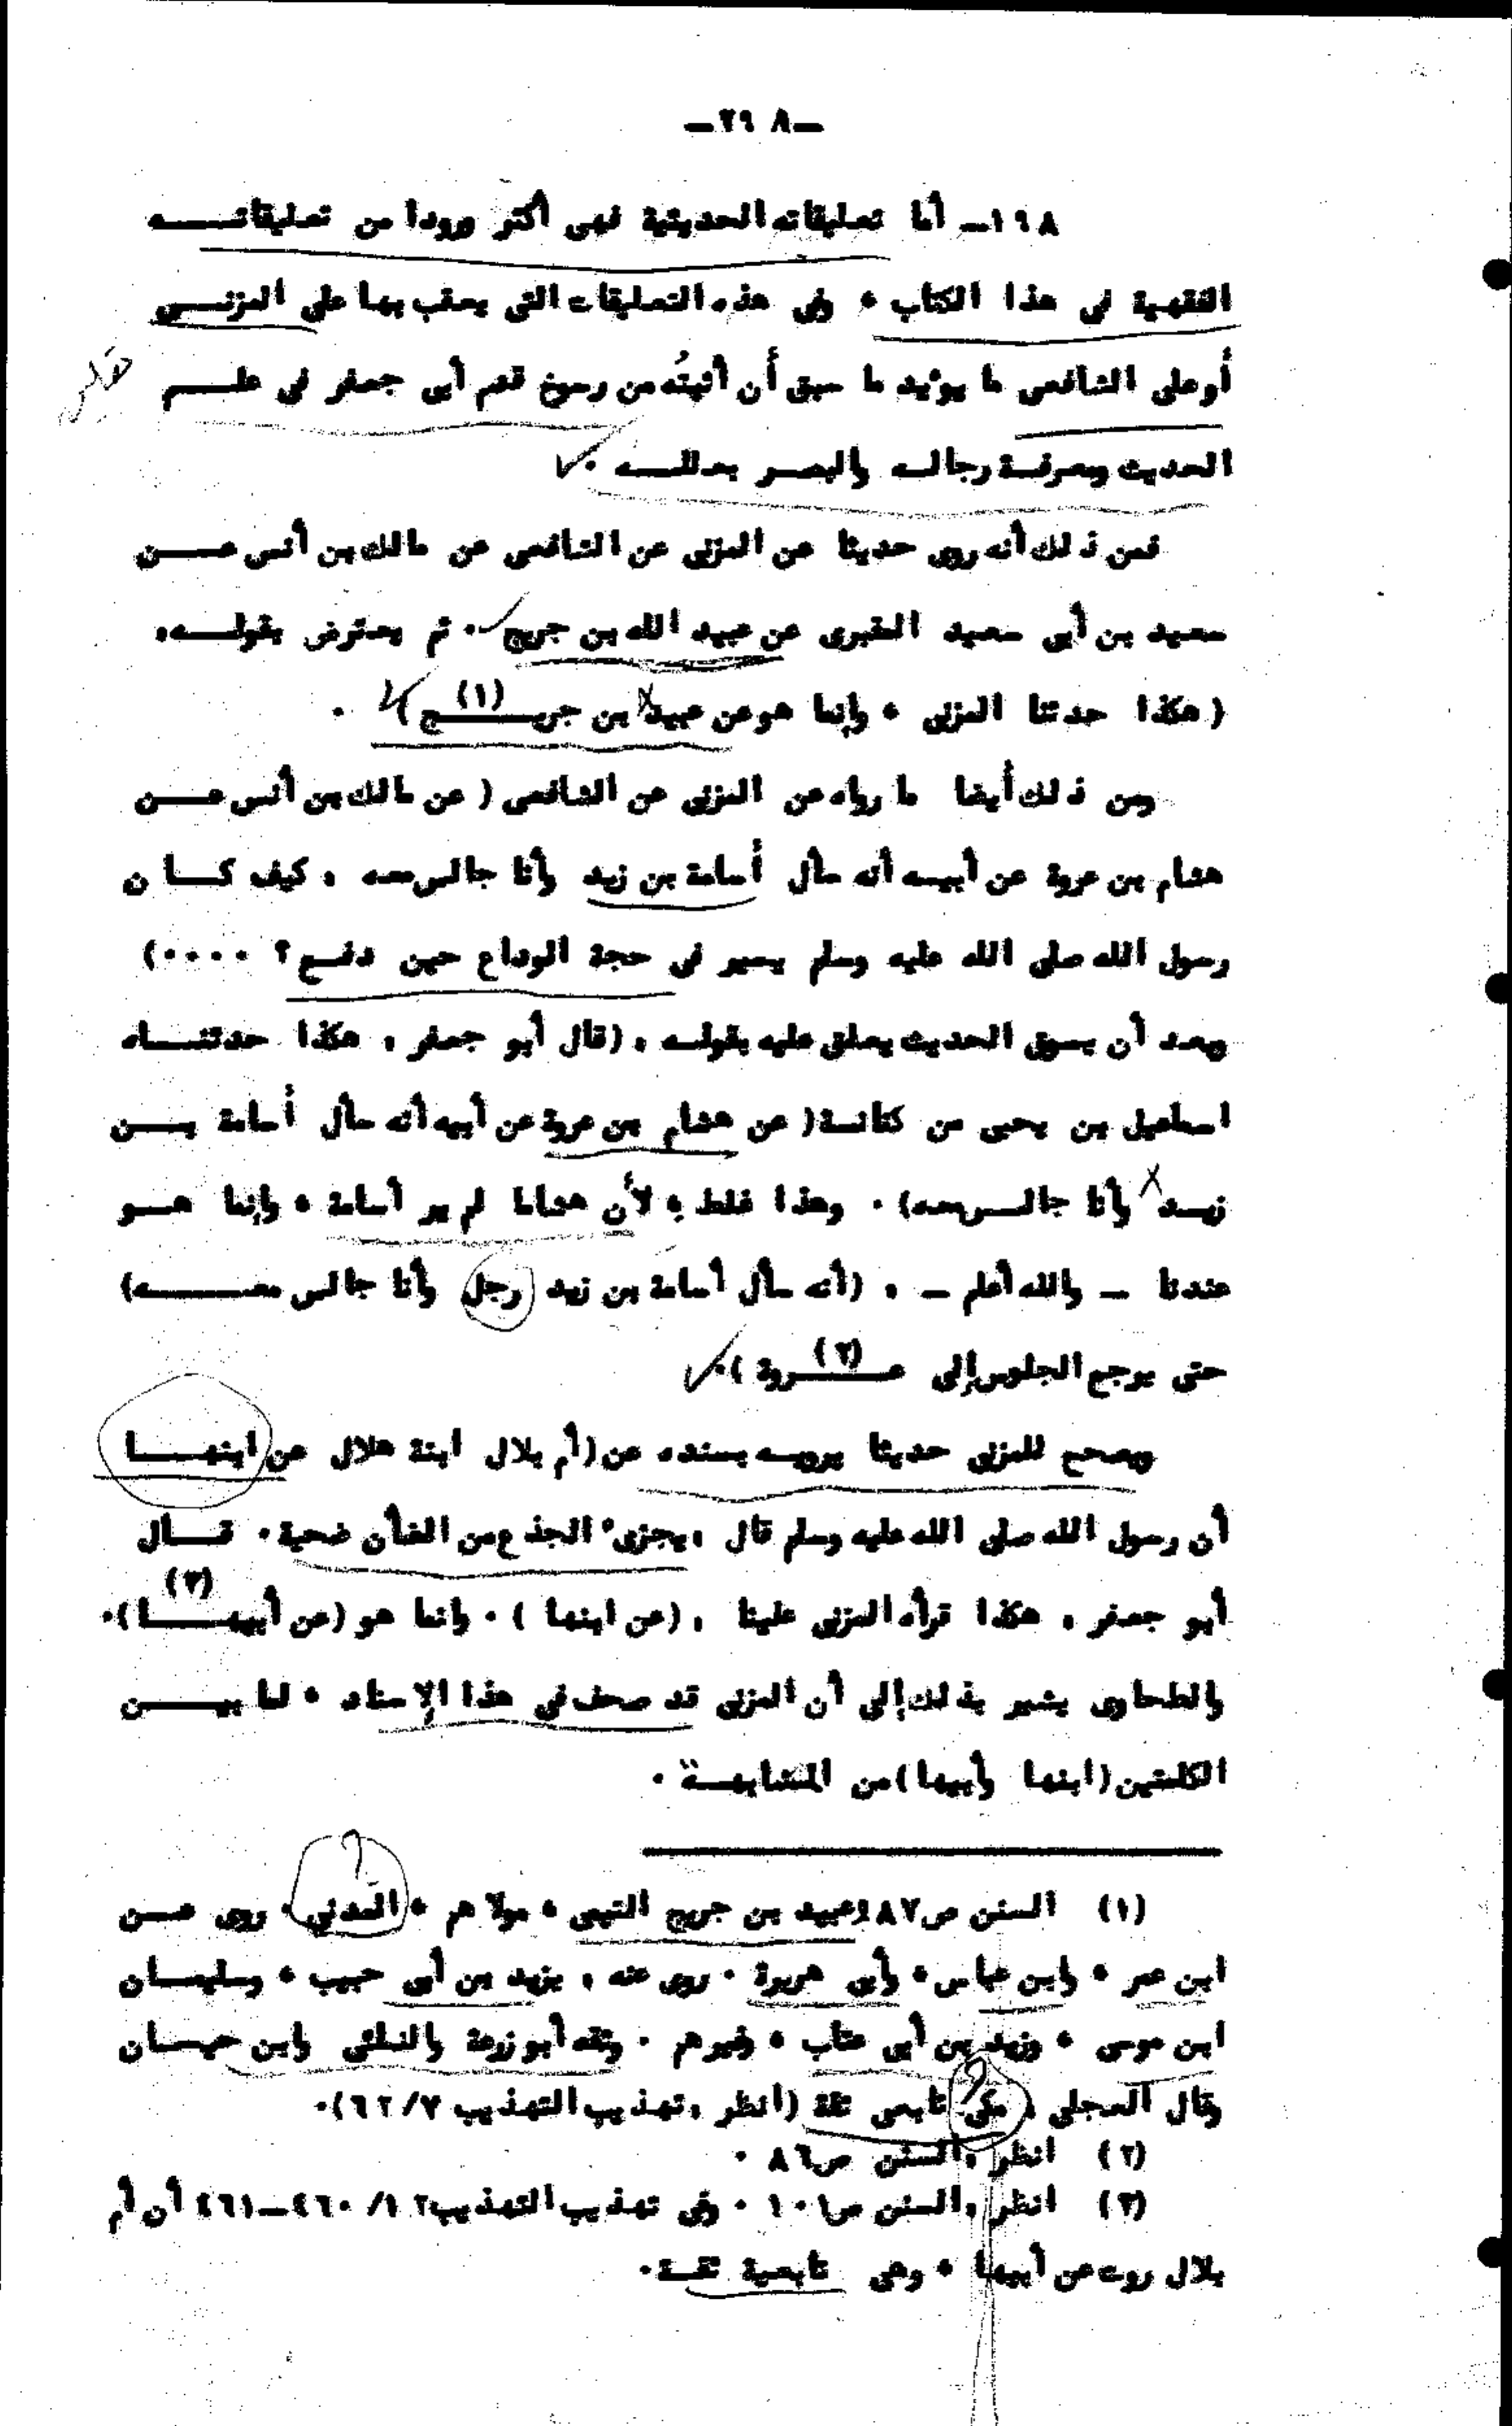 ـ٢٩٨ـ
١٩٨ـ أما تعليقاته الحديثية فهى أكثر ورودا من تعليقاتــــه
الفقهية فى هذا الكتاب ، وفى هذه التعليقات التى يعقب بها على المزنــى
أو على الشافعى ما يؤيد ما سبق أن أثبتُه من رسوخ قدم أبى جعفر فى علـــم
الحديث ومعرفـة رجالــه والبصــر بعللـــه .
فمن ذلك أنه روى حديثا عن المزنى عن الشافعى عن مالك بن أنس عـــن
سعيد بن أبى سعيد المقبرى عن عبيد الله بن جريج . ثم يعترض بقولــه:
( هكذا حدثنا المزنى ، وإنما هو عن عبيد بن جريـــج )(١) .
ومن ذلك أيضا ما رواه عن المزنى عن الشافعى ( عن مالك بن أنس عـــن
هشام بن عروة عن أبيــه أنه سأل أسامة بن زيد وأنا جالس معــه : كيف كـــان
رسول الله صلى الله عليه وسلم يسير فى حجة الوداع حين دفــع ؟ ....)
وبعد أن يسوق الحديث يعلق عليه بقولــه : (قال أبو جعفر : هكذا حدثنـــاه
اسماعيل بن يحيى من كتابــه( عن هشام بن عروة عن أبيه أنه سأل أسامة بـــن
زيــد وأنا جالــس معــه) . وهذا غلط ؛ لأن هشاما لم ير أسامة ، وإنما هـــو
عندنا ـ والله أعلم ـ : (أنه سأل أسامة بن زيد رجل وأنا جالس معــــــه)
حتى يرجع الجلوس إلى عــــروة )(٢).
ويصحح للمزنى حديثا يرويــه بسنده عن (أم بلال ابنة هلال عن ابنهـــا
أن رسول الله صلى الله عليه وسلم قال :يجزىء الجذع من الضأن ضحية. قـــال
أبو جعفر : هكذا قرأه المزنى علينا : (عن ابنها ) . وانما هو (عن أبيهـــا)(٣).
والطحاوى يشير بذلك إلى أن المزنى قد صحف فى هذا الإسناد ، لما بيــــن
الكلمتين (ابنها وأبيها) من المشابهــة .
(١) السنن ص٨٧ :عبيد بن جريج التيمى ، مولاهم ، المدنى . روى عـــن
ابن عمر ، وابن عباس ، وأبى هريرة . روى عنه : يزيد بن أبى حبيب ، وسليمـــان
ابن موسى ، وزيد بن أبى عتاب ، وغيرهم . وثقه أبو زرعة والنسائى وابن حبـــان
وقال العجلى : مكى تابعى ثقة (انظر :تهذيب التهذيب ٦٢/٧).
(٢) انظر :السنن ص٨٦ .
(٣) انظر :السنن ص١٠١ . وفى تهذيب التهذيب ١٢/ ٤٦٠ـ٤٦١ أن أم
بلال روت عن أبيها ، وهى تابعية ثقــة.